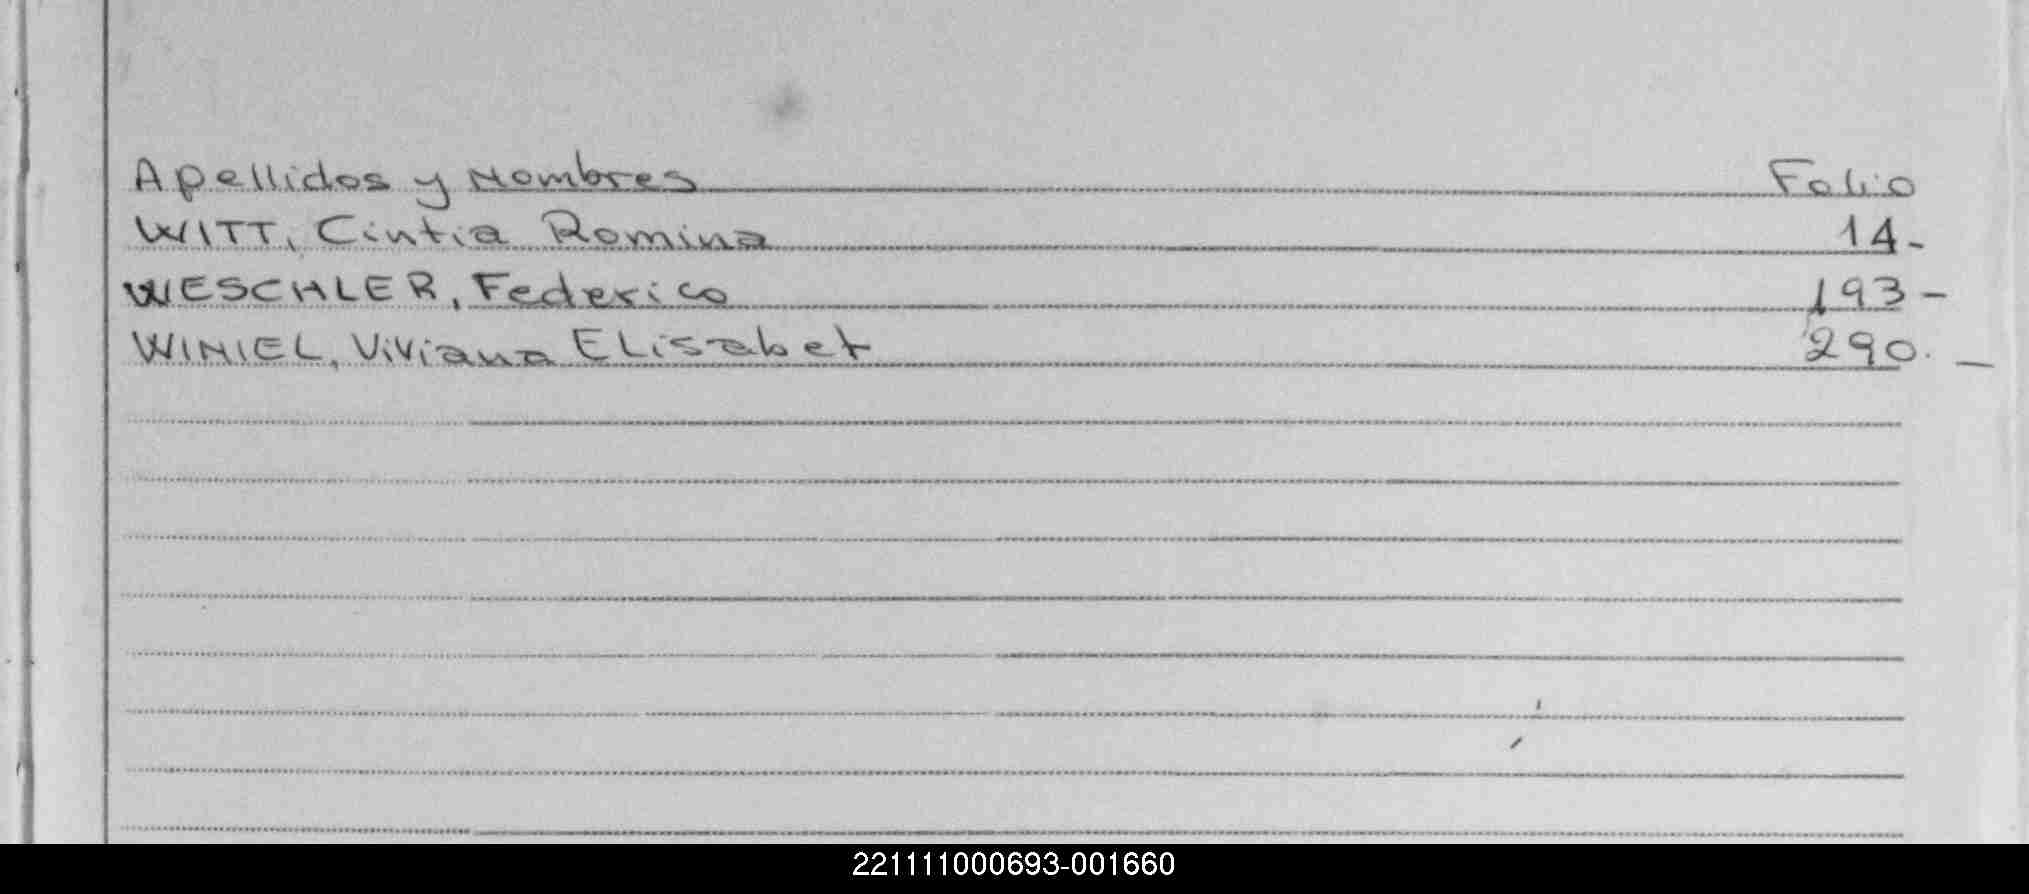 Apellidos y Nombres Folio
WITT, Cintia Romina 14-
WESCHLER, Federico 193-
WINIEL, Viviana Elisabet 290.-
221111000693-001660